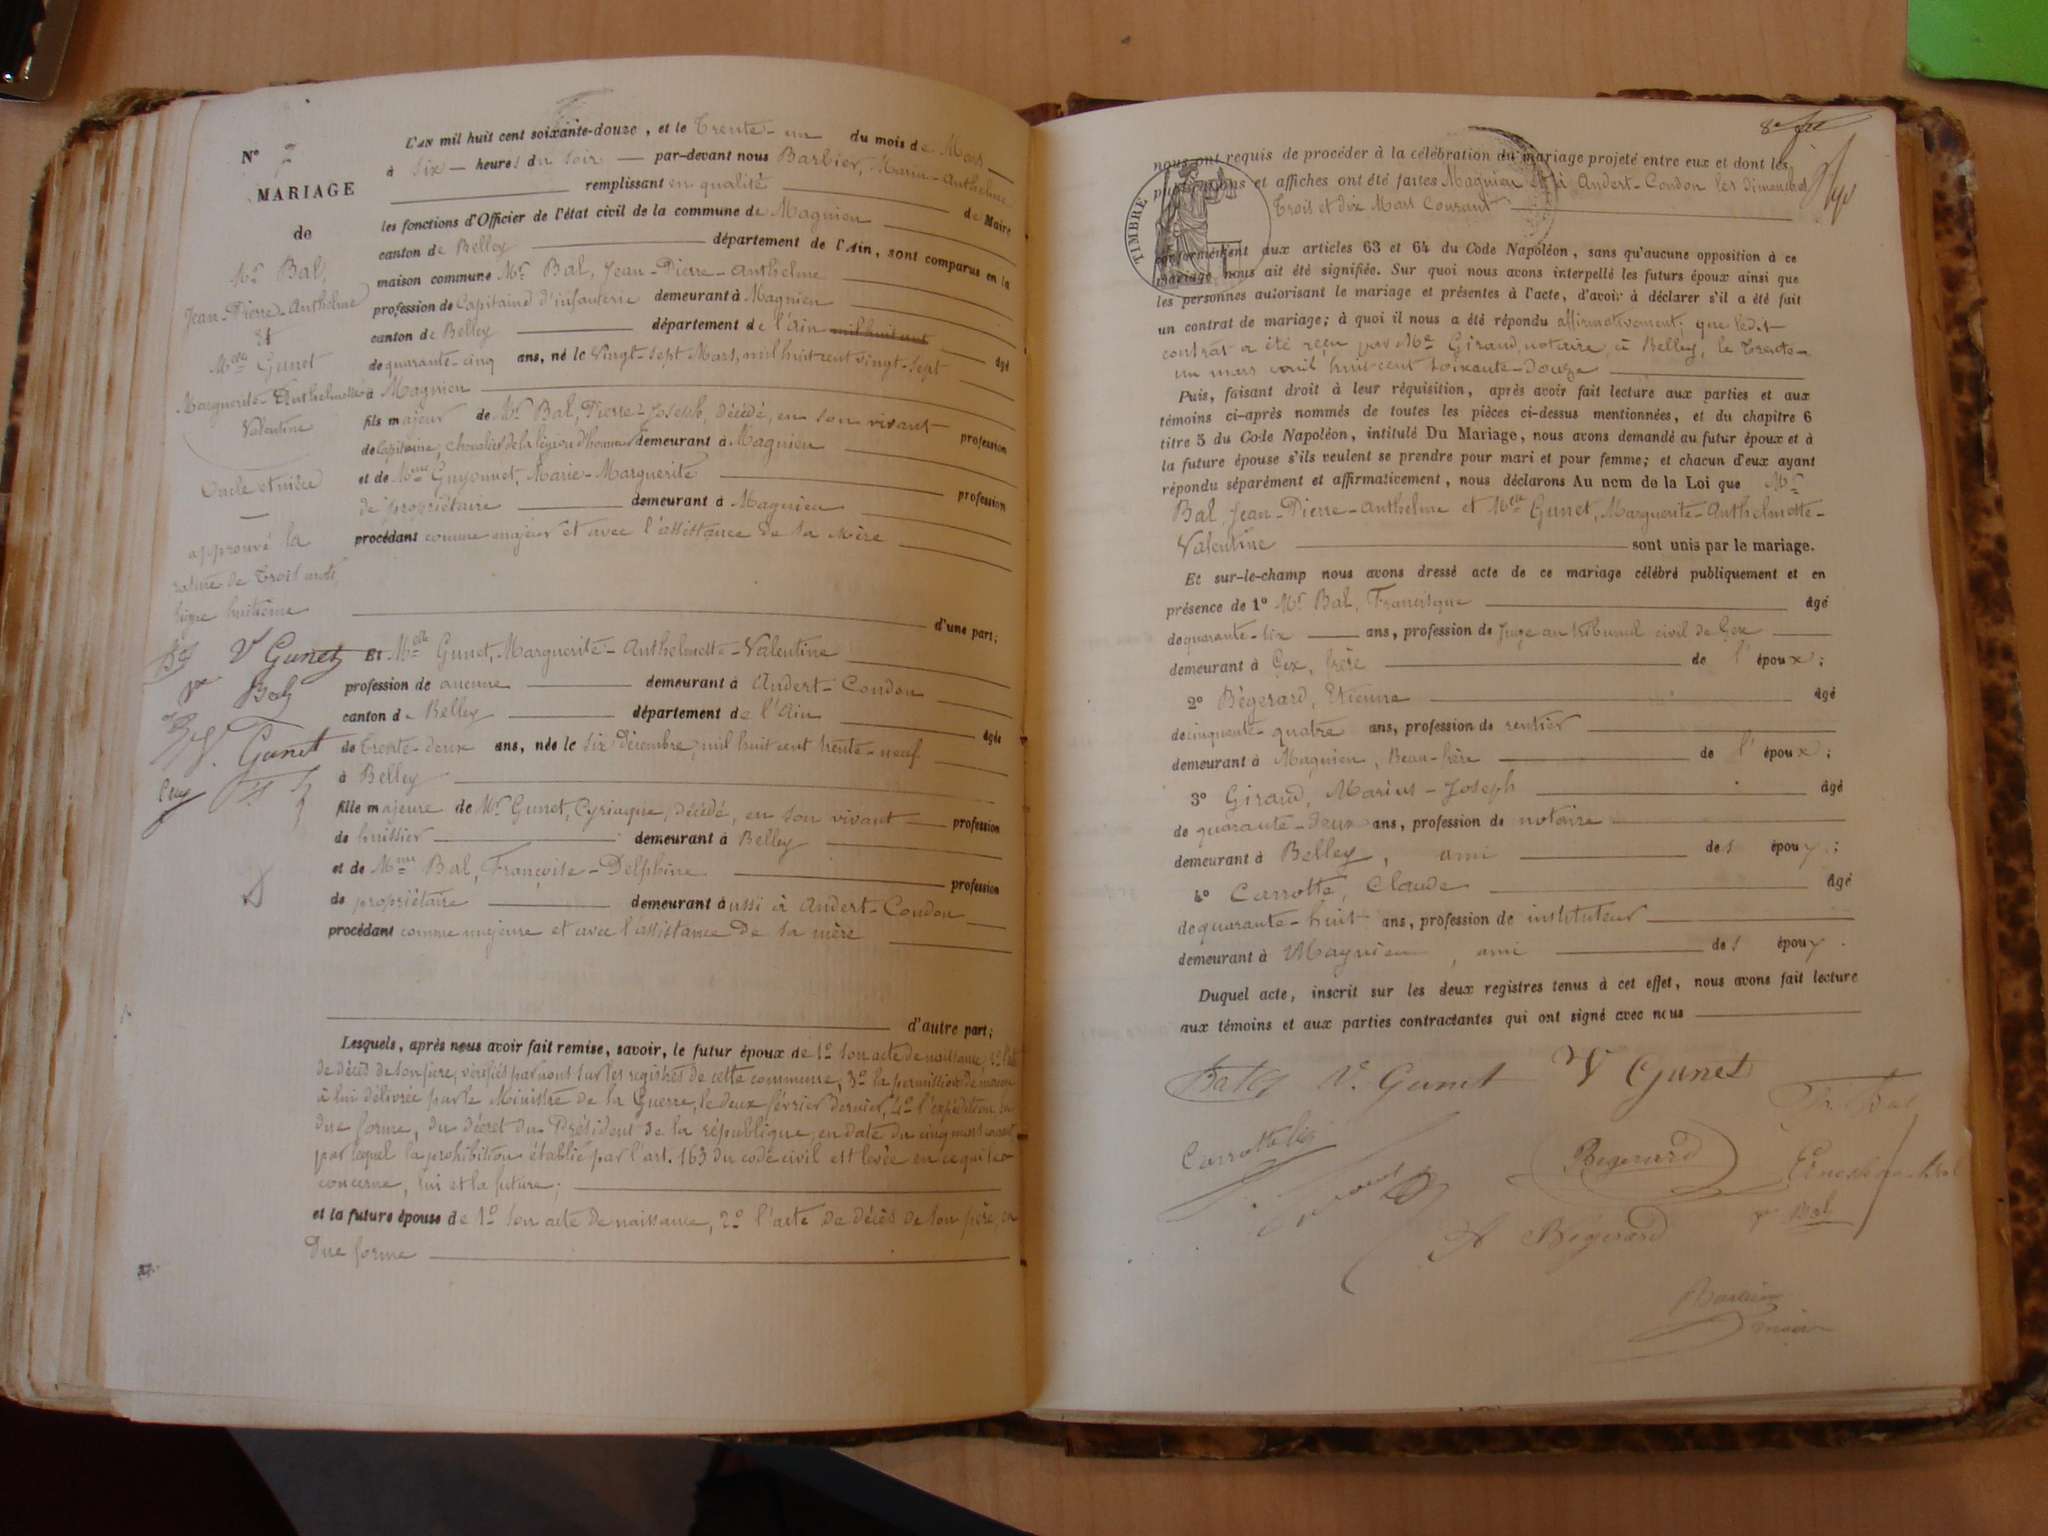 N° 7
MARIAGE
de
Mr Bal,
Jean-Pierre-Anthelme
Et
Melle Gunet
Marguerite-Anthelmette
Valentine
Oncle et nièce
approuvé la
rature de trois mots
ligne huitième
V Gunet
Bal
V. Gunet
L'AN mil huit cent soixante-douze, et le Trente-un du mois de Mars
à six heures du soir par-devant nous Barbier, Marin-Anthelme
remplissant en qualité de Maire
les fonctions d'Officier de l'état civil de la commune de Magnieu
canton de Belley département de l'Ain, sont comparus en la
maison commune Mr Bal, Jean-Pierre-Anthelme
profession de Capitaine d'infanterie demeurant à Magnieu
canton de Belley département de l'Ain mil huit cent âgé
de quarante-cinq ans, né le Vingt-sept Mars, mil huit cent vingt-sept
à Magnieu
fils majeur de Mr Bal, Pierre-Joseph, décédé, en son vivant profession
de Capitaine, chevalier de la légion d'honneur demeurant à Magnieu
et de Mme Guyonnet, Marie-Marguerite profession
de propriétaire demeurant à Magnieu
procédant comme majeur et avec l'assistance de sa mère
d'une part;
Et Melle Gunet, Marguerite-Anthelmette-Valentine
profession de aucune demeurant à Andert-Condon
canton de Belley département de l'Ain âgée
de trente-deux ans, née le six décembre, mil huit cent trente-neuf
à Belley
fille majeure de Mr Gunet, Cyriaque, décédé, en son vivant profession
de huissier demeurant à Belley
et de Mme Bal, Françoise-Delphine profession
de propriétaire demeurant aussi à Andert-Condon
procédant comme majeure et avec l'assistance de sa mère
d'autre part;
Lesquels, après nous avoir fait remise, savoir, le futur époux de 1° son acte de naissance, 2° l'acte
de décès de son père, vérifiés par nous sur les registres de cette commune, 3° la permission de mariage
à lui délivrée par le Ministre de la Guerre, le deux février dernier, 4° l'expédition en
due forme, du décret du Président de la république, en date du cinq mars courant
par lequel la prohibition établie par l'art. 163 du code civil est levée en ce qui les
concerne, lui et la future;
et la future épouse de 1° son acte de naissance, 2° l'acte de décès de son père, en
due forme
8e
nous ont requis de procéder à la célébration du mariage projeté entre eux et dont les
publications et affiches ont été faites Magnieu et à Andert-Condon les dimanches
Trois et dix Mars Courant
TIMBRE
conformément aux articles 63 et 64 du Code Napoléon, sans qu'aucune opposition à ce
mariage nous ait été signifiée. Sur quoi nous avons interpellé les futurs époux ainsi que
les personnes autorisant le mariage et présentes à l'acte, d'avoir à déclarer s'il a été fait
un contrat de mariage; à quoi il nous a été répondu affirmativement; que ledit
contrat a été reçu par Me Giraud, notaire, à Belley, le trente-
un mars mil huit cent soixante-douze
Puis, faisant droit à leur réquisition, après avoir fait lecture aux parties et aux
témoins ci-après nommés de toutes les pièces ci-dessus mentionnées, et du chapitre 6
titre 5 du Code Napoléon, intitulé Du Mariage, nous avons demandé au futur époux et à
la future épouse s'ils veulent se prendre pour mari et pour femme; et chacun d'eux ayant
répondu séparément et affirmativement, nous déclarons Au nom de la Loi que Mr
Bal, Jean-Pierre-Anthelme et Melle Gunet, Marguerite-Anthelmette-
Valentine sont unis par le mariage.
Et sur-le-champ nous avons dressé acte de ce mariage célébré publiquement et en
présence de 1° Mr Bal, Francisque âgé
de quarante-six ans, profession de Juge au tribunal civil de Gex
demeurant à Gex, frère de l'époux;
2° Bégerard, Etienne âgé
de cinquante-quatre ans, profession de rentier
demeurant à Magnieu, Beau-frère de l'époux;
3° Giraud, Marius-Joseph âgé
de quarante-deux ans, profession de notaire
demeurant à Belley, ami des époux;
4° Carrotte, Claude âgé
de quarante-huit ans, profession de instituteur
demeurant à Magnieu, ami des époux.
Duquel acte, inscrit sur les deux registres tenus à cet effet, nous avons fait lecture
aux témoins et aux parties contractantes qui ont signé avec nous
Bal Ve Gunet V Gunet
Fr. Bal
Carrotte
Begerard
Bal
A Bégerard
Barbier
maire